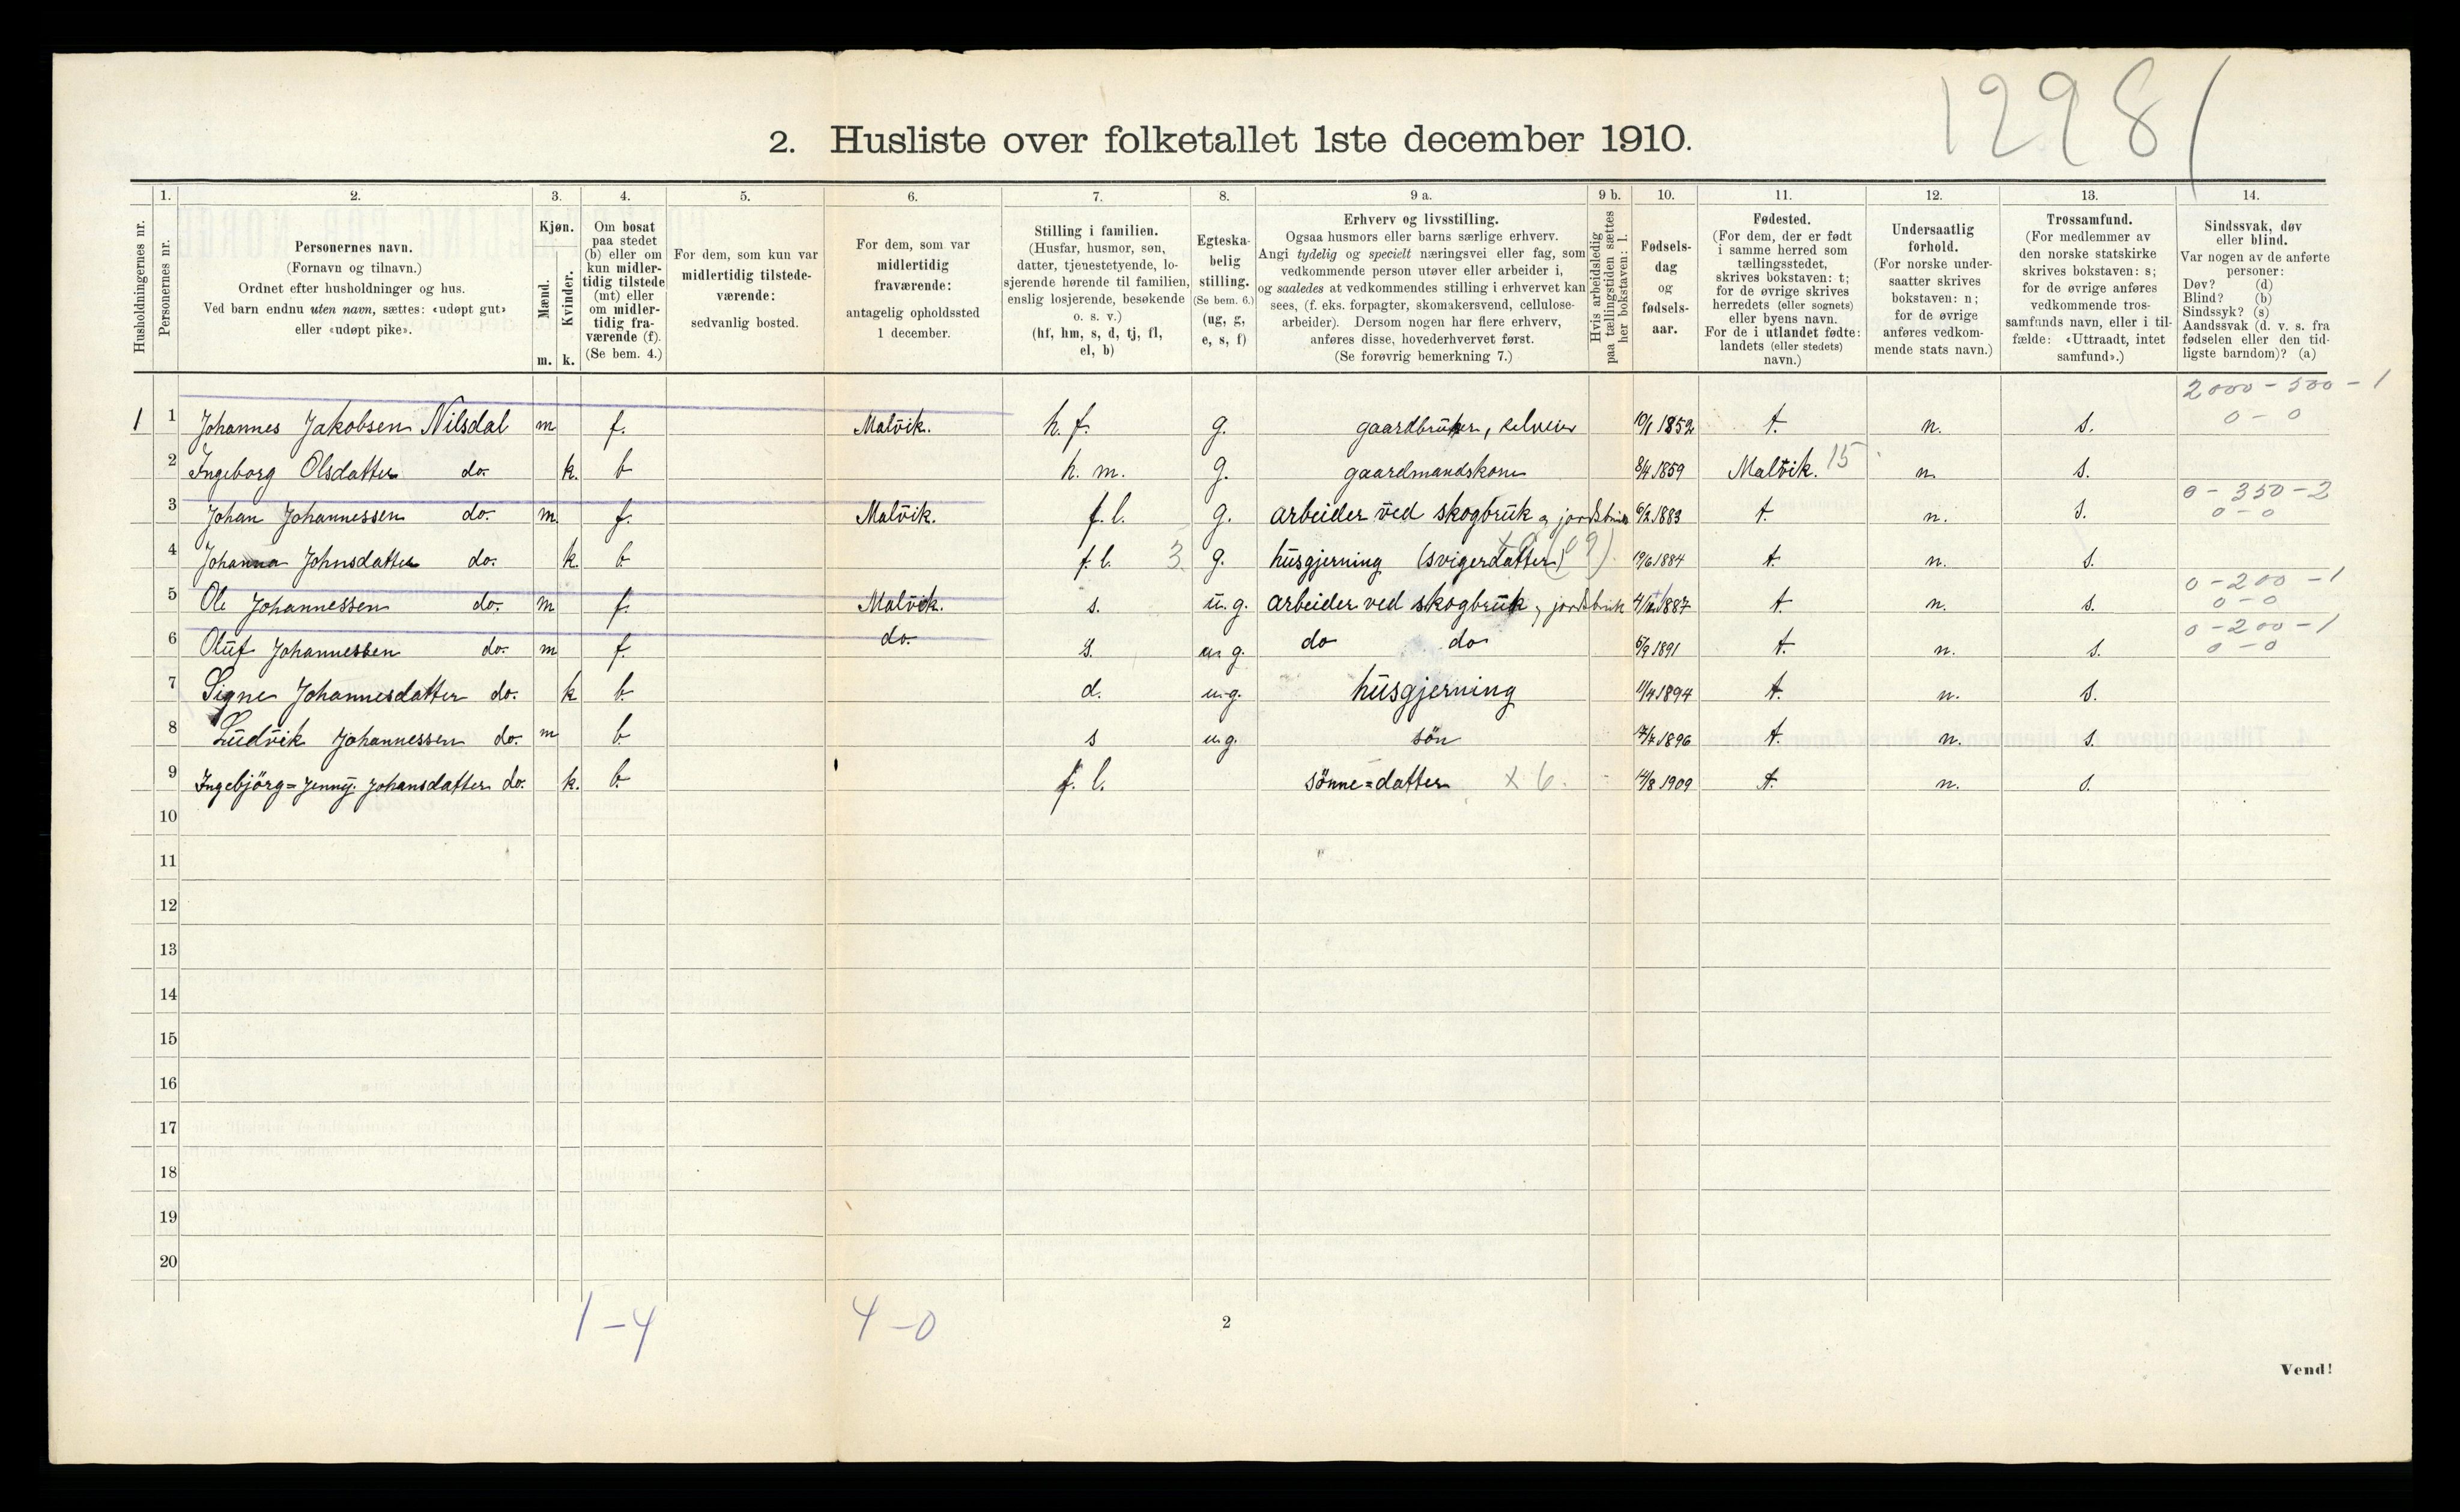 1298 /
2. Husliste over folketallet 1ste december 1910.
1. 2. 3. 4. 5. 6. 7. 8. 9 a. 9 b. 10. 11. 12. 13. 14.
Husholdningernes nr.
Personernes nr.
Personernes navn.
(Fornavn og tilnavn.)
Ordnet efter husholdninger og hus.
Ved barn endnu uten navn, sættes: «udøpt gut»
eller «udøpt pike».
Kjøn.
Mænd.
Kvinder.
m. k.
Om bosat
paa stedet
(b) eller om
kun midler-
tidig tilstede
(mt) eller
om midler-
tidig fra-
værende (f).
(Se bem. 4.)
For dem, som kun var
midlertidig tilstede-
værende:
sedvanlig bosted.
For dem, som var
midlertidig
fraværende:
antagelig opholdssted
1 december.
Stilling i familien.
(Husfar, husmor, søn,
datter, tjenestetyende, lo-
sjerende hørende til familien,
enslig losjerende, besøkende
o. s. v.)
(hf, hm, s, d, tj, fl,
el, b)
Egteska-
belig
stilling.
(Se bem. 6.)
(ug, g,
e, s, f)
Erhverv og livsstilling.
Ogsaa husmors eller barns særlige erhverv.
Angi tydelig og specielt næringsvei eller fag, som
vedkommende person utøver eller arbeider i,
og saaledes at vedkommendes stilling i erhvervet kan
sees, (f. eks. forpagter, skomakersvend, cellulose-
arbeider). Dersom nogen har flere erhverv,
anføres disse, hovederhvervet først.
(Se forøvrig bemerkning 7.)
Hvis arbeidsledig
paa tællingstiden sættes
her bokstaven: l.
Fødsels-
dag
og
fødsels-
aar.
Fødested.
(For dem, der er født
i samme herred som
tællingsstedet,
skrives bokstaven: t;
for de øvrige skrives
herredets (eller sognets)
eller byens navn.
For de i utlandet fødte:
landets (eller stedets)
navn.)
Undersaatlig
forhold.
(For norske under-
saatter skrives
bokstaven: n;
for de øvrige
anføres vedkom-
mende stats navn.)
Trossamfund.
(For medlemmer av
den norske statskirke
skrives bokstaven: s;
for de øvrige anføres
vedkommende tros-
samfunds navn, eller i til-
fælde: «Uttraadt, intet
samfund».)
Sindssvak, døv
eller blind.
Var nogen av de anførte
personer:
Døv? (d)
Blind? (b)
Sindssyk? (s)
Aandssvak (d. v. s. fra
fødselen eller den tid-
ligste barndom)? (a)
2000 - 500 - 1
1 1 Johannes Jakobsen Nilsdal m f. Malvik. h. f. g. gaardbruker, selveier 10/1 1852 t. n. s. 0 - 0
2 Ingeborg Olsdatter do. k. b h. m. g. gaardmandskone 8/4 1859 Malvik. 15 n. s.
0 - 350 - 2
3 Johan Johannessen do. m. f. Malvik. f. l. g. arbeider ved skogbruk og jordbruk 6/2 1883 t. n. s. 0 - 0
4 Johanna Johnsdatter do. k. b f. l. 3 g. husgjerning (svigerdatter) 19/6 1884 t. n. s.
0 - 200 - 1
5 Ole Johannessen do. m f. Malvik. s. u. g. arbeider ved skogbruk og jordbruk 1887 t. n. s. 0 - 0
0 - 200 - 1
6 Oluf Johannessen do. m f. do. s. u. g. do do 5/9 1891 t. n. s. 0 - 0
7 Signe Johannesdatter do. k b. d. u. g. husgjerning 11/4 1894 t. n. s.
8 Ludvik Johannessen do. m b. s u. g. søn 7/7 1896 t. n. s.
9 Ingebjörg=Jenny. Johansdatter do. k. b. f. l. sönne=datter x 6. 14/8 1909 t. n. s.
10
11
12
13
14
15
16
17
18
19
20
1 - 4 4 - 0
2
Vend!